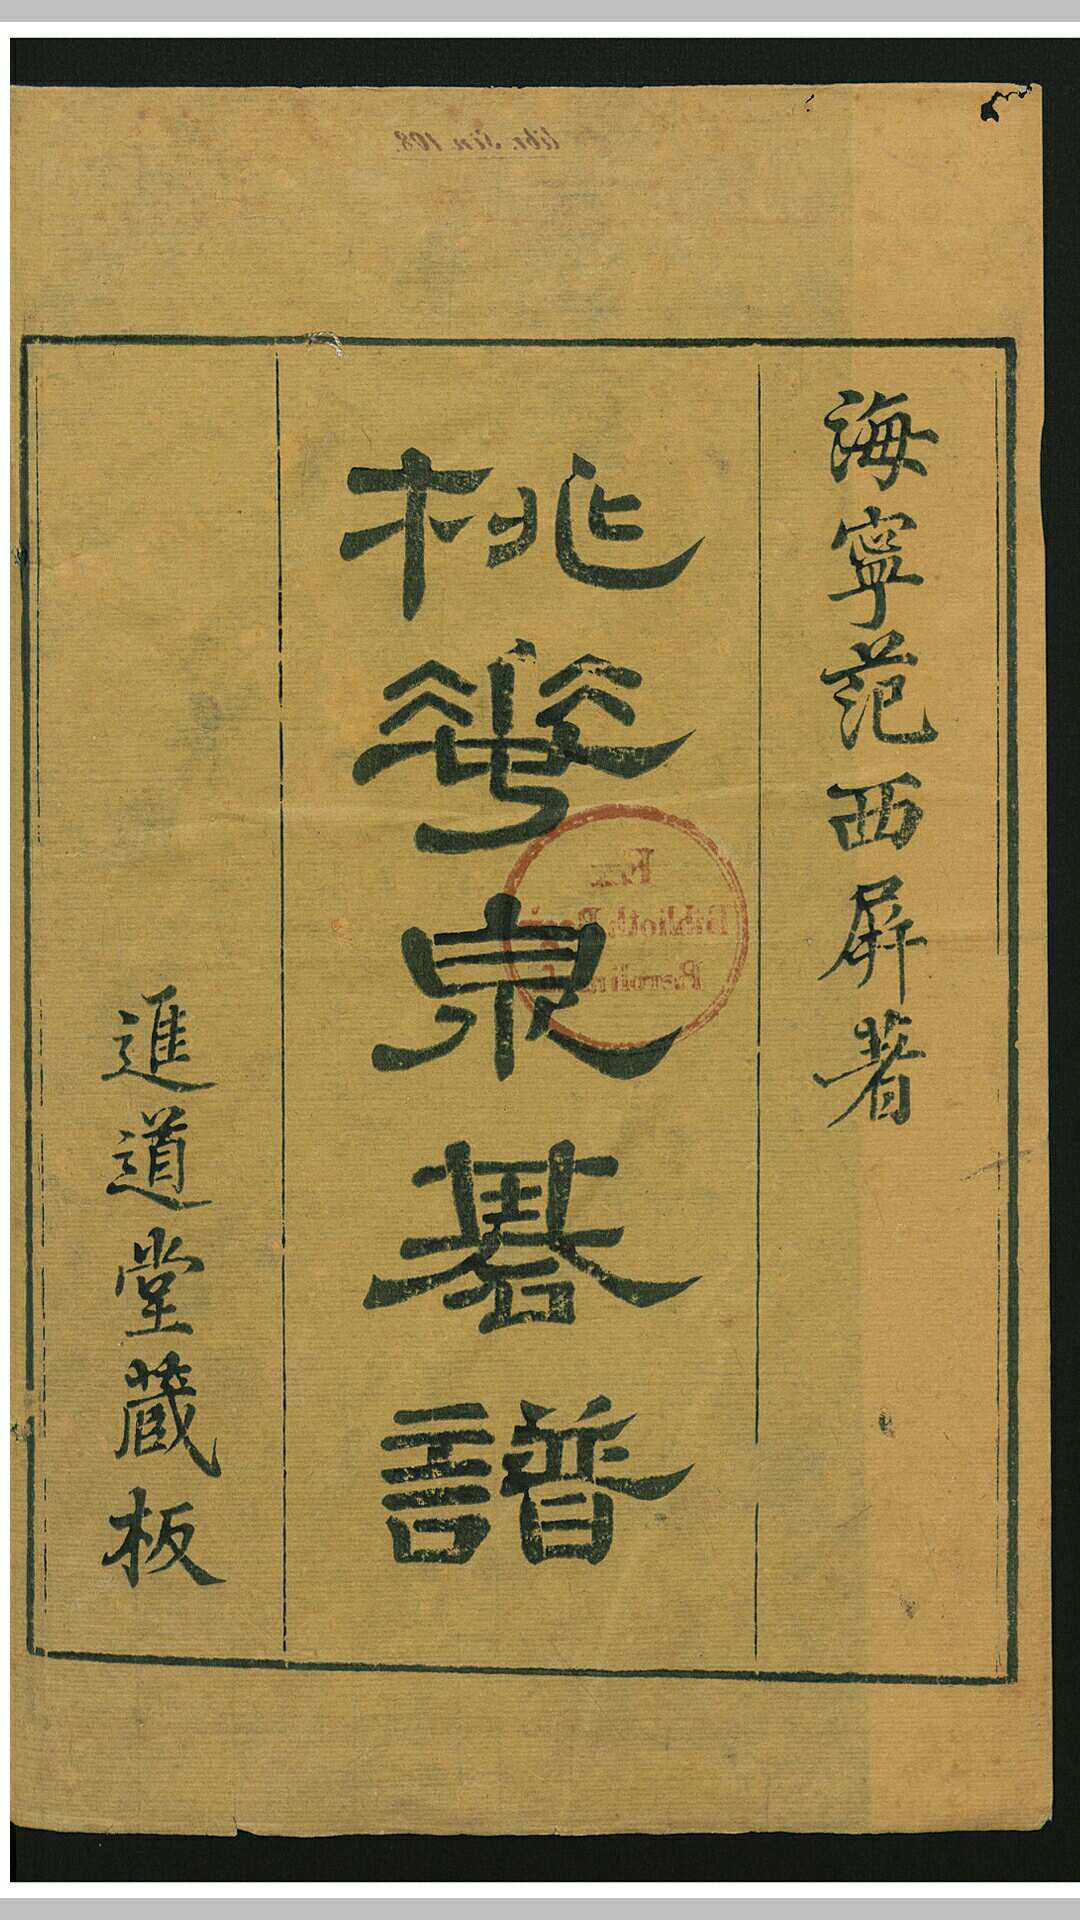 海寧范西屏著
桃花泉棊譜
進道堂藏板
libr. Sin 108.
Ex
Biblioth. Regia
Berolinensi